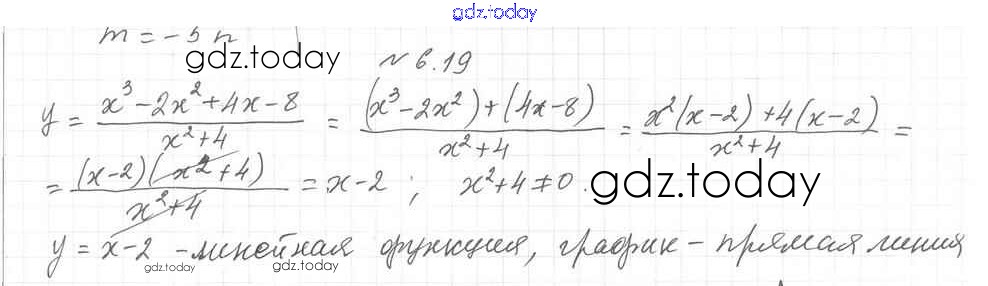 gdz.today
m = -5n
gdz.today
№ 6.19
y = (x³-2x²+4x-8)/(x²+4) = ((x³-2x²)+(4x-8))/(x²+4) = (x²(x-2)+4(x-2))/(x²+4) =
= ((x-2)(x²+4))/(x²+4) = x-2 ; x²+4≠0.
gdz.today
y = x-2 - линейная функция, график - прямая линия
gdz.today gdz.today